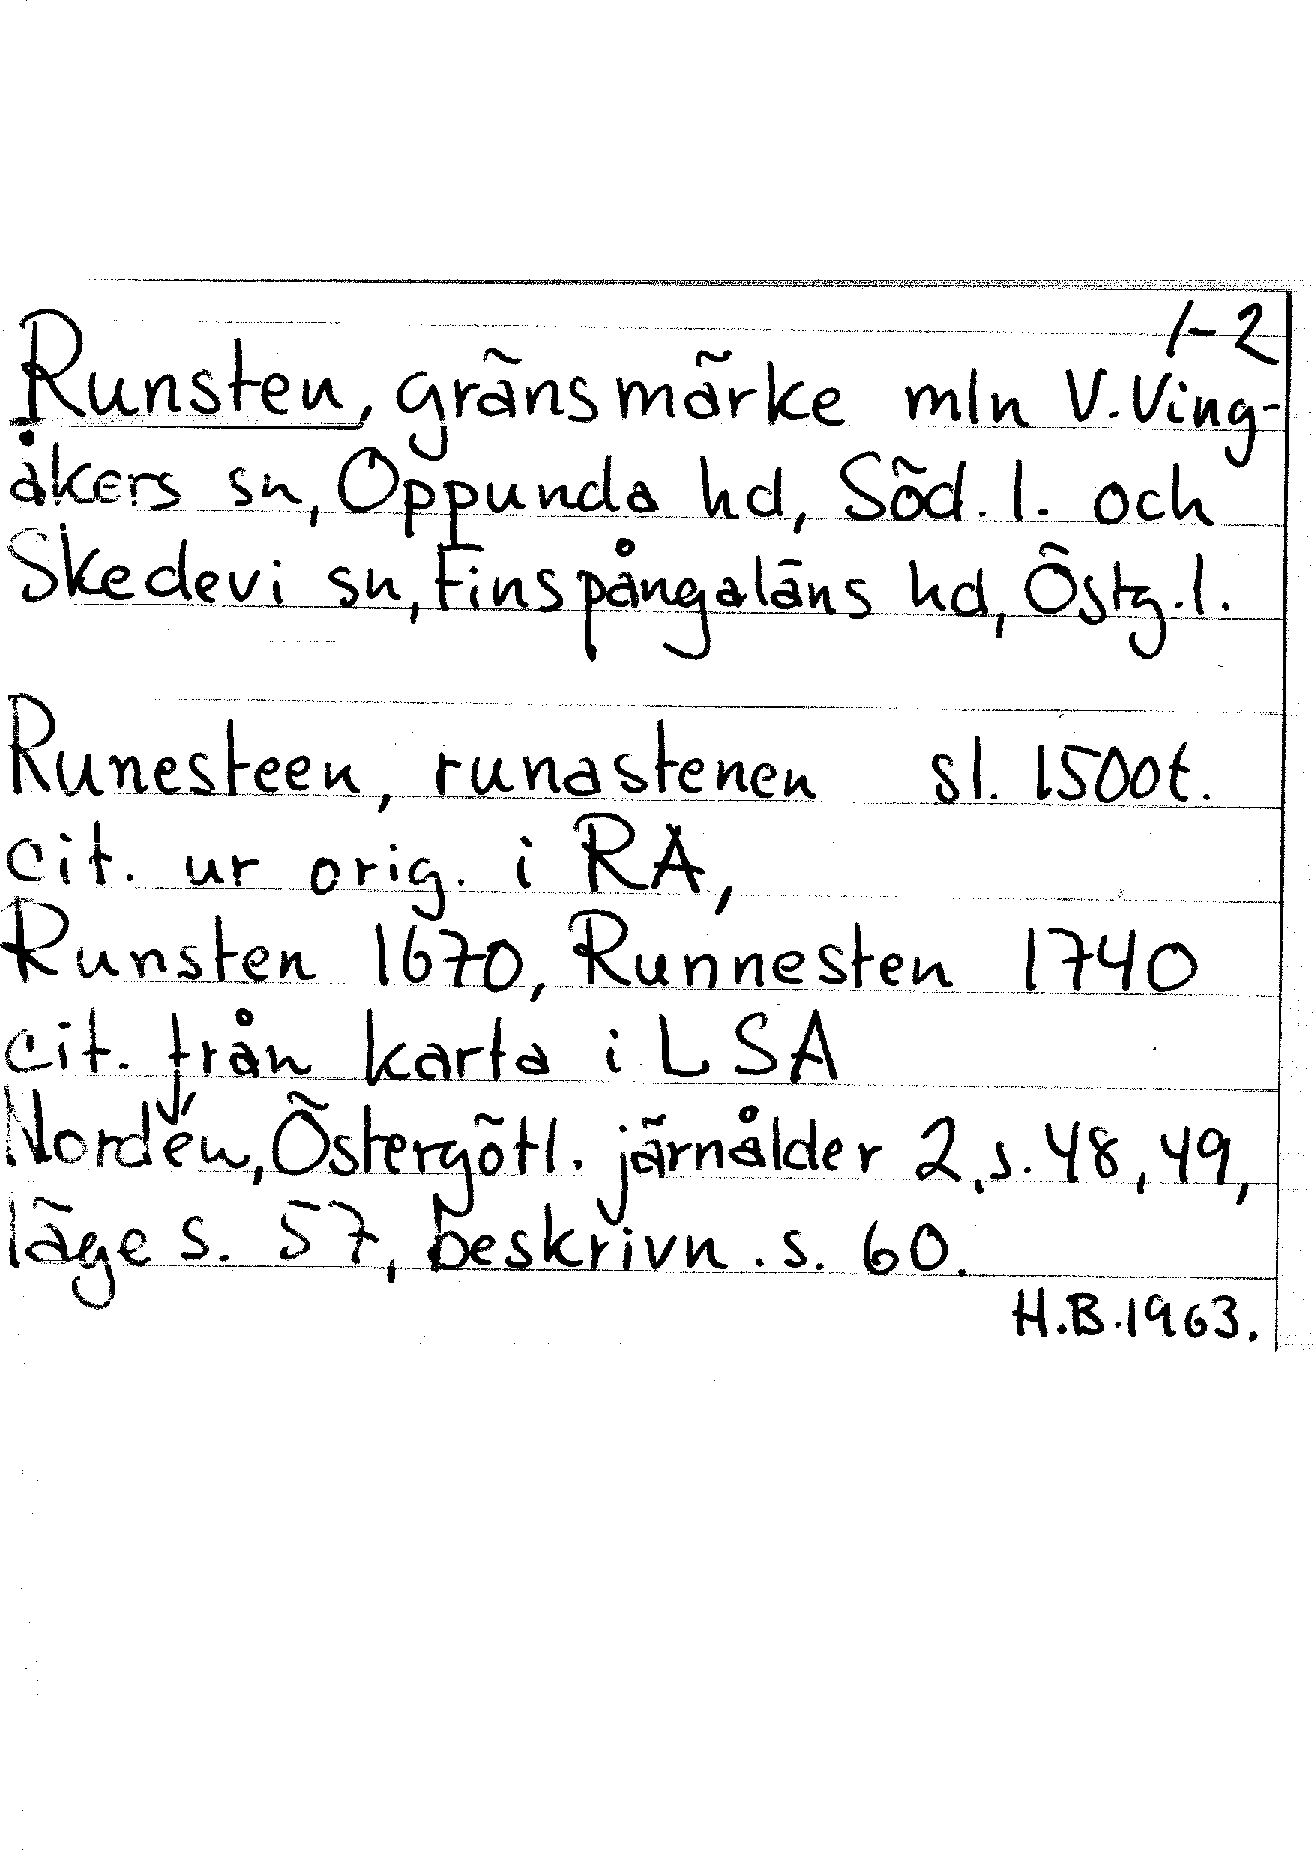 1-2
Runsten, gränsmärke mln V. Ving-
åkers sn, Oppunda hd, Söd. l. och
Skedevi sn, Finspångaläns hd, Östg. l.
Runesteen, runastenen sl. 1500t.
cit. ur orig. i RA,
Runsten 1670, Runnesten 1740
cit. från karta i LSA
Nordén, Östergötl. järnålder 2, s. 48, 49,
läge s. 57, beskrivn. s. 60.
H.B. 1963.